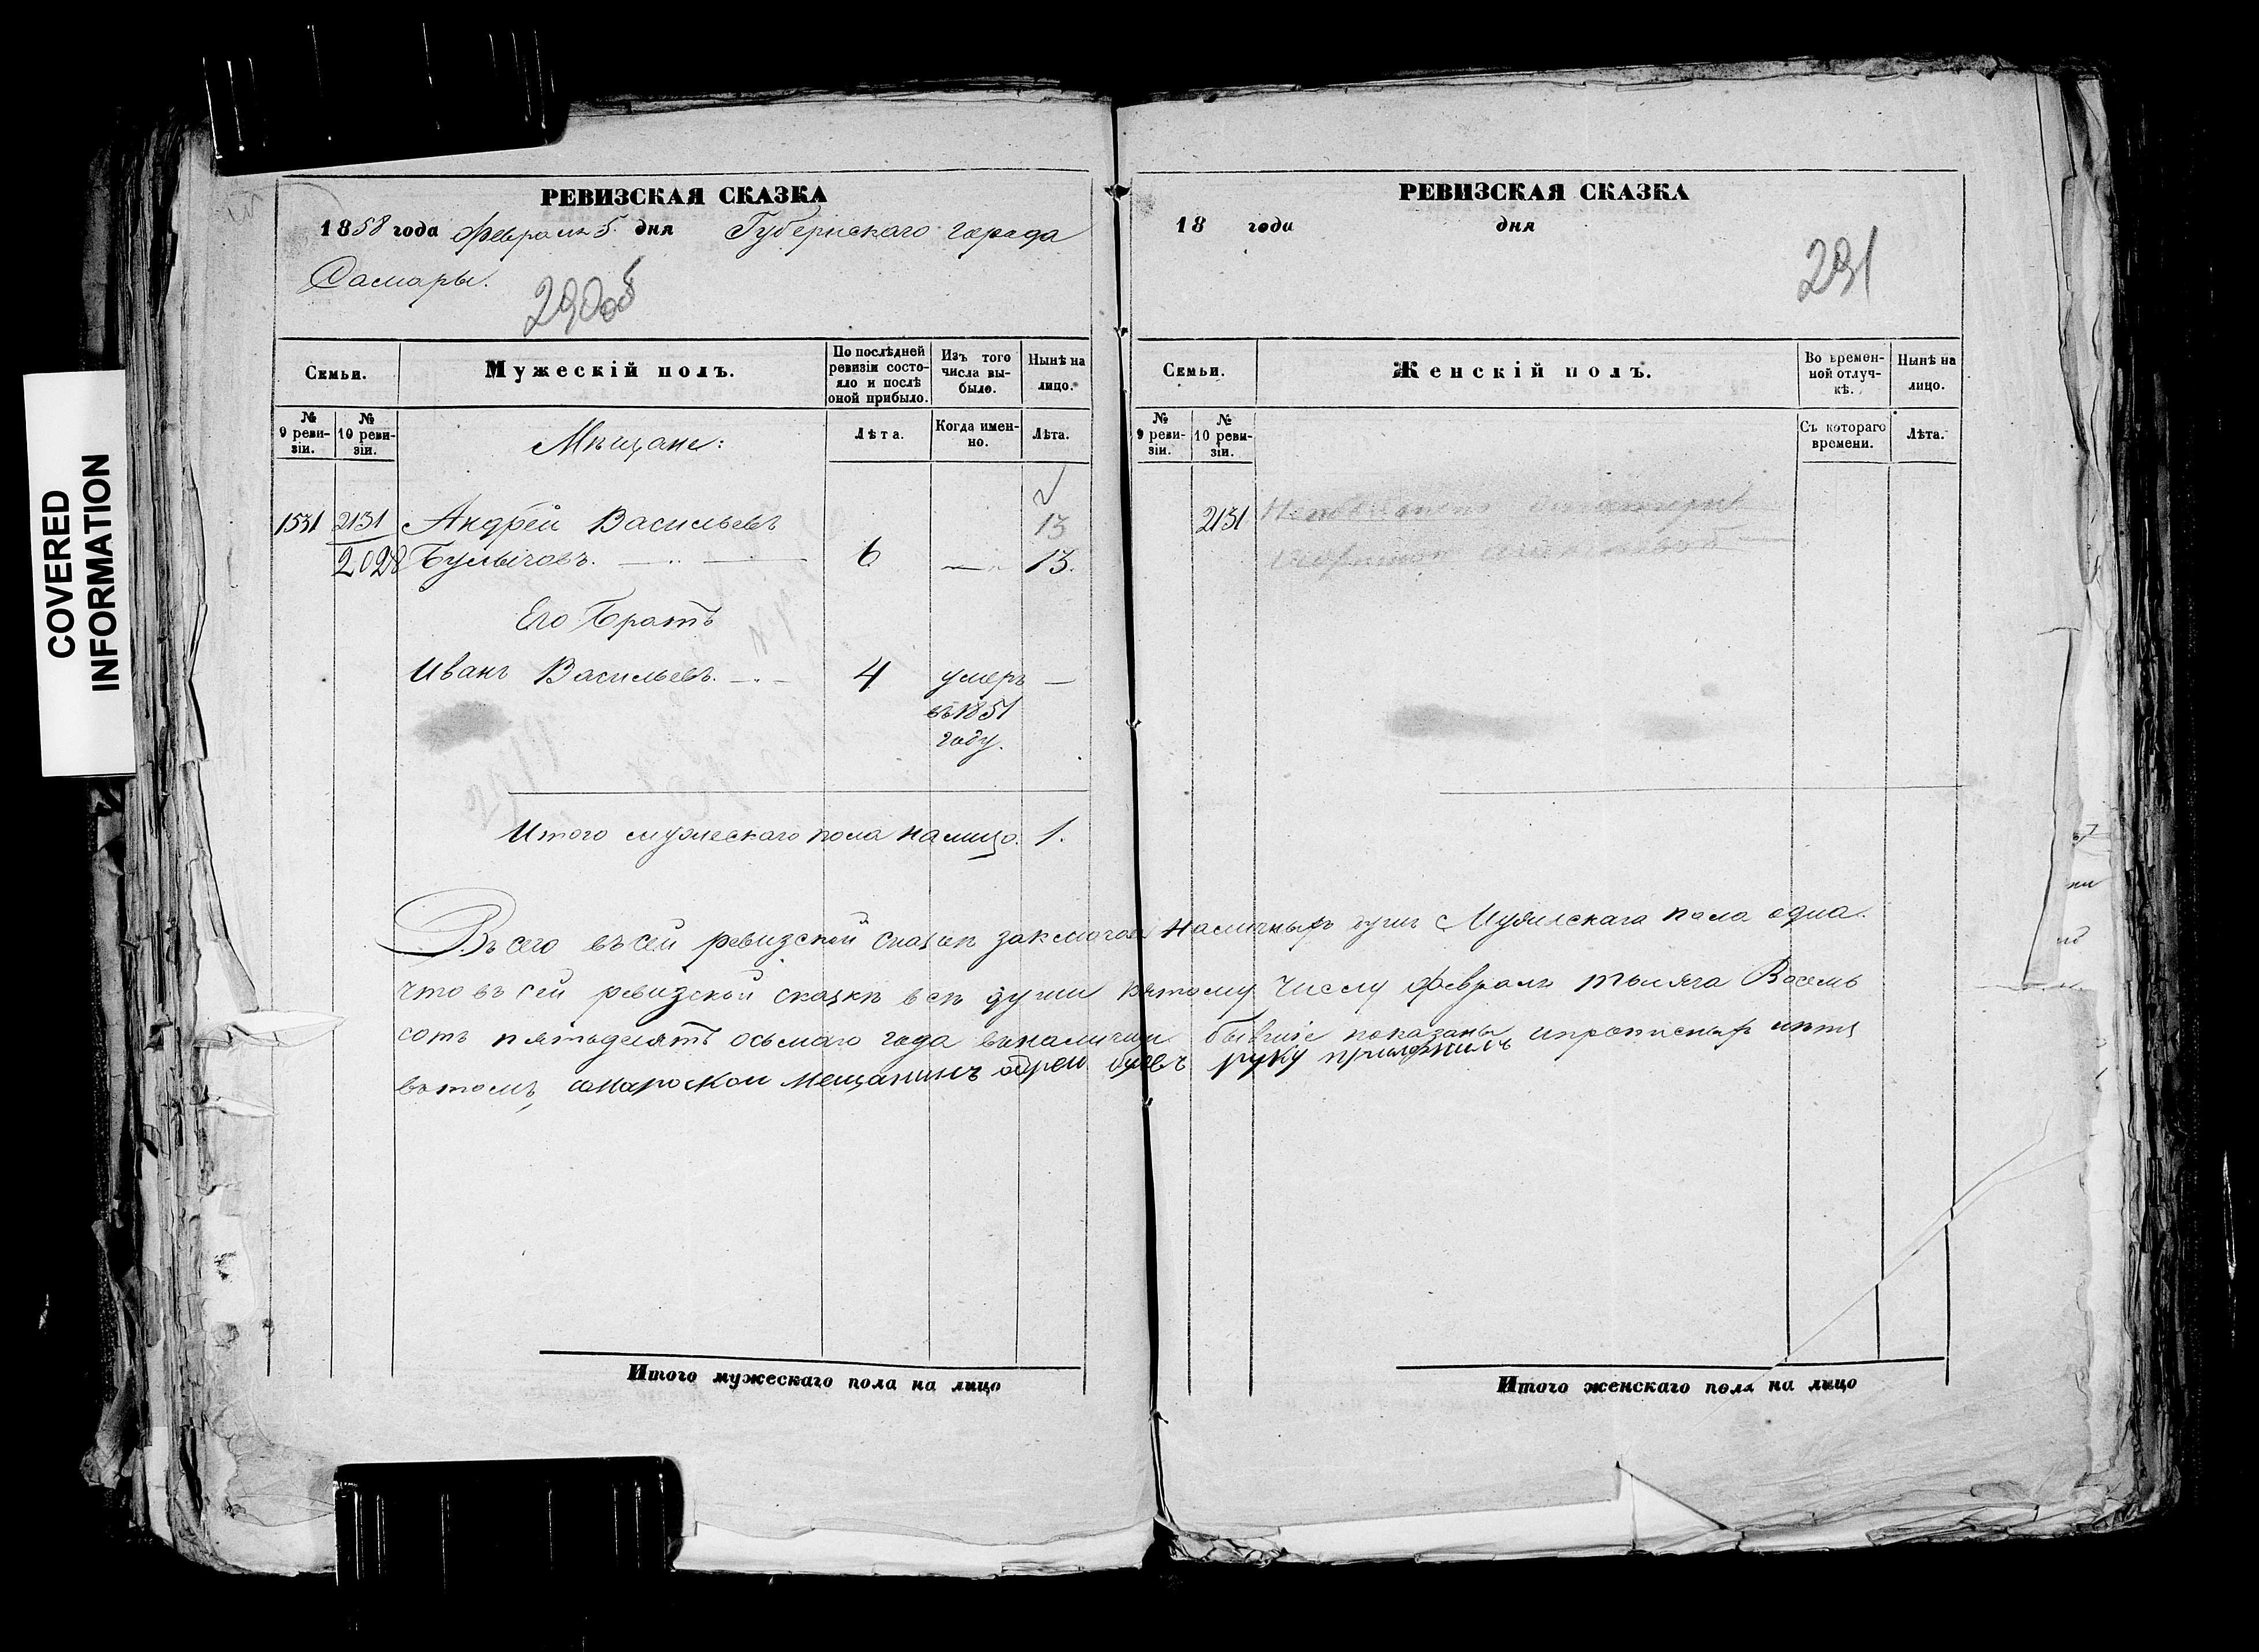 COVERED
INFORMATION
РЕВИЗСКАЯ СКАЗКА
1858 года Февраля 5 дня Губернскаго города
Самары.
290об
Семьи.
Мужескій полъ.
По послѣдней ревизіи состояло и послѣ оной прибыло.
Изъ того числа выбыло.
Нынѣ на лицо.
№ 9 ревизіи.
№ 10 ревизіи.
Мѣщане:
Лѣта.
Когда именно.
Лѣта.
1531 2131 Андрей Васильевъ 13
2028 Булычовъ. 6 — 13.
Его Братъ
Иванъ Васильевъ. 4 умеръ —
въ 1851
году.
Итого мужескаго пола налицо. 1.
РЕВИЗСКАЯ СКАЗКА
18 года дня
291
Семьи.
Женскій полъ.
Во временной отлучкѣ.
Нынѣ на лицо.
№ 9 ревизіи.
№ 10 ревизіи.
Съ котораго времени.
Лѣта.
2131
Въсего въ сей ревизской скаскѣ заключает наличныхъ душъ Мужескаго пола одна.
что въ сей ревизской сказкѣ всѣ души пятому числу Февраля тысяча Восемь
сотъ пятьдесятъ осьмаго года въналичіи бывшіе показаны ипрописныхъ нѣтъ
вътомъ, самарской мещанинъ руку приложилъ
Итого мужескаго пола на лицо
Итого женскаго пола на лицо